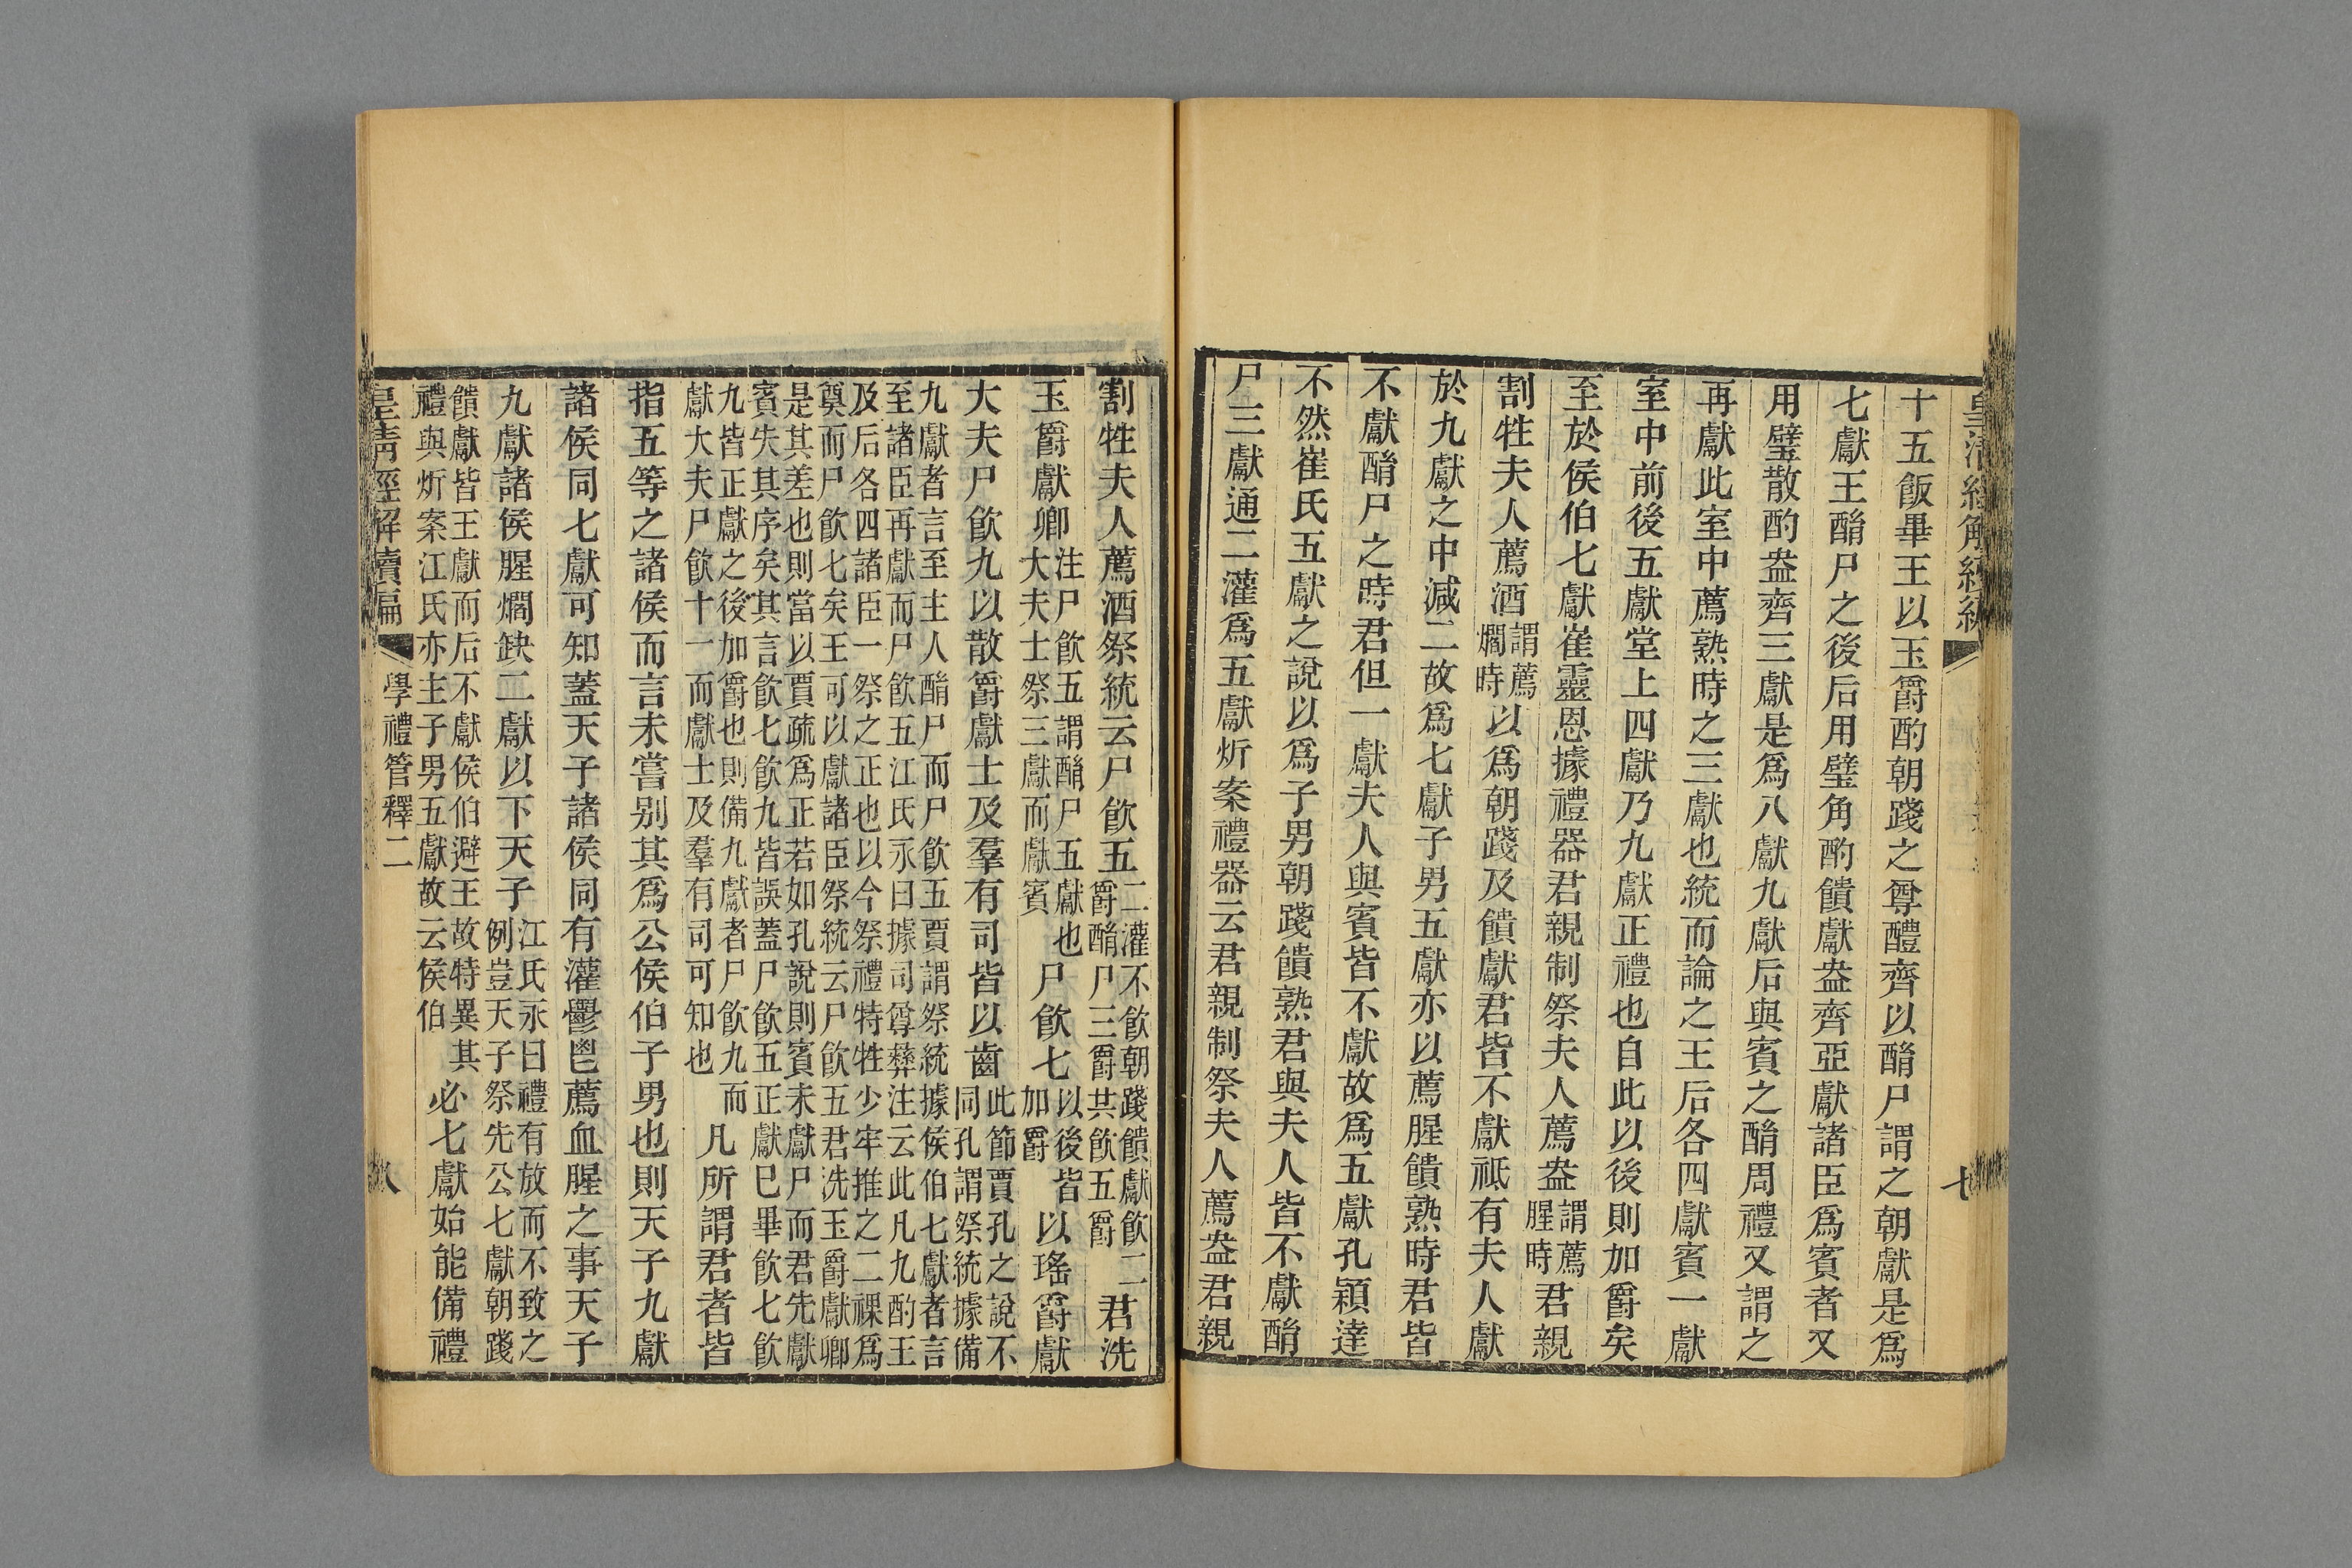 皇清經解續編
七
十五飯畢王以玉爵酌朝踐之尊醴齊以酳尸謂之朝獻是爲
七獻王酳尸之後后用璧角酌饋獻盎齊亞獻諸臣爲賓者又
用璧散酌盎齊三獻是爲八獻九獻后與賓之酳周禮又謂之
再獻此室中薦熟時之三獻也統而論之王后各四獻賓一獻
室中前後五獻堂上四獻乃九獻正禮也自此以後則加爵矣
至於侯伯七獻崔靈恩據禮器君親制祭夫人薦盎謂薦腥時君親
割牲夫人薦酒謂薦爓時以爲朝踐及饋獻君皆不獻祗有夫人獻
於九獻之中減二故爲七獻子男五獻亦以薦腥饋熟時君皆
不獻酳尸之時君但一獻夫人與賓皆不獻故爲五獻孔穎達
不然崔氏五獻之說以爲子男朝踐饋熟君與夫人皆不獻酳
尸三獻通二灌爲五獻炘案禮器云君親制祭夫人薦盎君親
割牲夫人薦酒祭統云尸飲五二灌不飲朝踐饋獻飲二爵酳尸三爵共飲五爵君洗
玉爵獻卿注尸飲五謂酳尸五獻也大夫士祭三獻而獻賓尸飲七以後皆加爵以瑤爵獻
大夫尸飲九以散爵獻士及羣有司皆以齒此節賈孔之說不同孔謂祭統據備
九獻者言至主人酳尸而尸飲五賈謂祭統據侯伯七獻者言
至諸臣再獻而尸飲五江氏永曰據司尊彝注云此凡九酌王
及后各四諸臣一祭之正也以今祭禮特牲少牢推之二祼爲
奠而尸飲七矣王可以獻諸臣祭統云尸飲五君洗玉爵獻卿
是其差也則當以賈疏爲正若如孔說則賓未獻尸而君先獻
賓失其序矣其言飲七飲九皆誤蓋尸飲五正獻巳畢飲七飲
九皆正獻之後加爵也則備九獻者尸飲九而
獻大夫尸飲十一而獻士及羣有司可知也凡所謂君者皆
指五等之諸侯而言未嘗别其爲公侯伯子男也則天子九獻
諸侯同七獻可知蓋天子諸侯同有灌鬱鬯薦血腥之事天子
九獻諸侯腥爓缺二獻以下天子江氏永曰禮有放而不致之例豈天子祭先公七獻朝踐
饋獻皆王獻而后不獻侯伯避王故特異其
禮與炘案江氏亦主子男五獻故云侯伯必七獻始能備禮
皇清經解續編
學禮管釋二
八